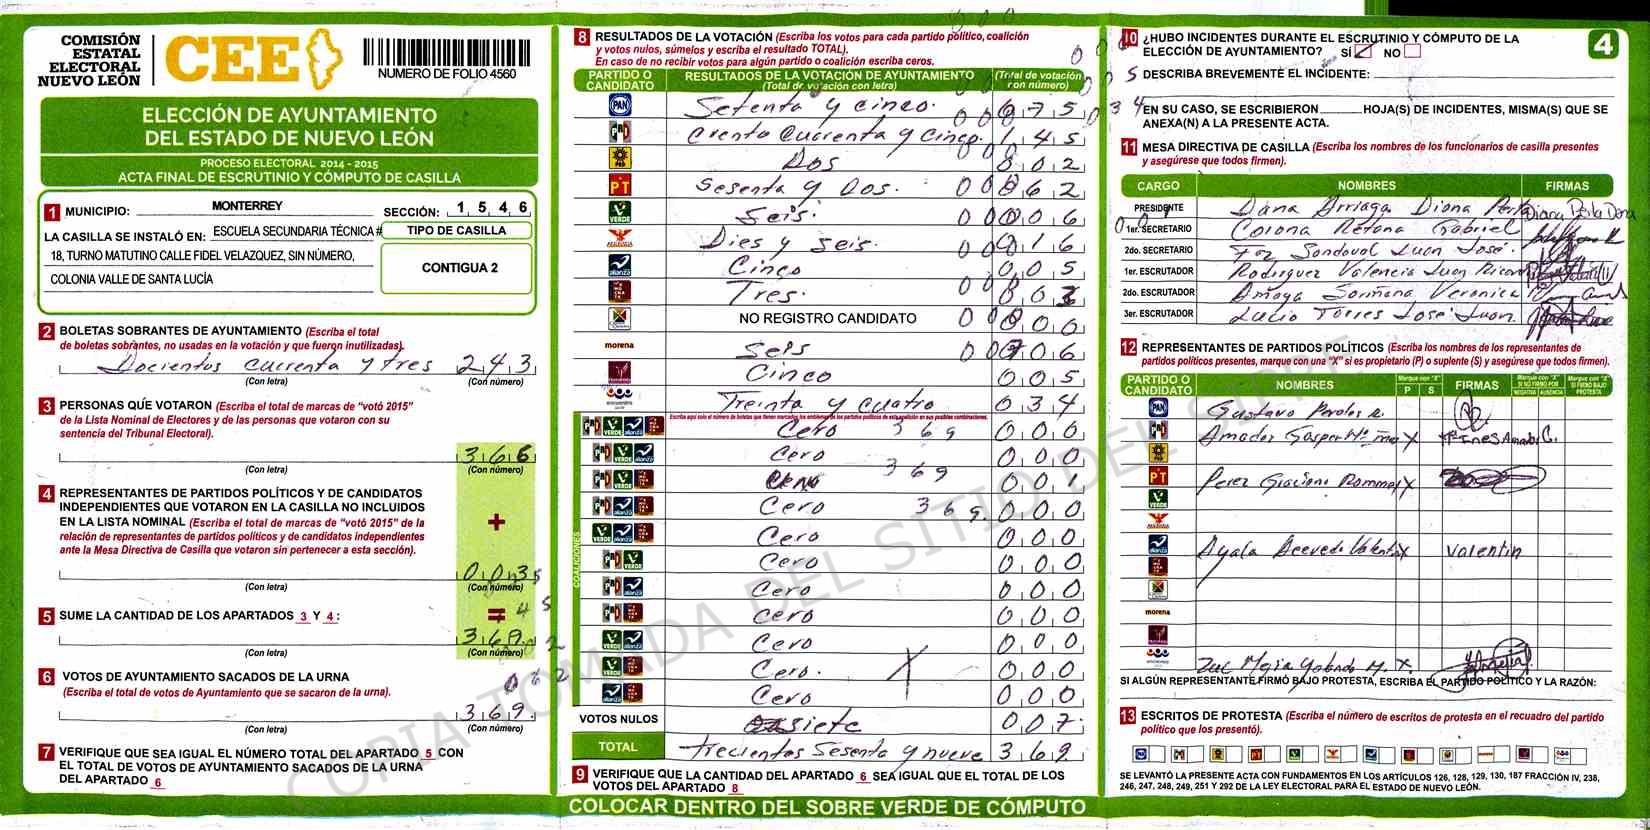 COMISIÓN
ESTATAL
ELECTORAL
NUEVO LEÓN
CEE
NUMERO DE FOLIO 4560
ELECCIÓN DE AYUNTAMIENTO
DEL ESTADO DE NUEVO LEÓN
PROCESO ELECTORAL 2014 - 2015
ACTA FINAL DE ESCRUTINIO Y CÓMPUTO DE CASILLA
1 MUNICIPIO: MONTERREY SECCIÓN: 1 5 4 6
LA CASILLA SE INSTALÓ EN: ESCUELA SECUNDARIA TÉCNICA #
18, TURNO MATUTINO CALLE FIDEL VELAZQUEZ, SIN NÚMERO,
COLONIA VALLE DE SANTA LUCÍA
TIPO DE CASILLA
CONTIGUA 2
2 BOLETAS SOBRANTES DE AYUNTAMIENTO (Escriba el total
de boletas sobrantes, no usadas en la votación y que fueron inutilizadas).
Docientos cuarenta y tres 243
(Con letra) (Con número)
3 PERSONAS QUÍE VOTARON (Escriba el total de marcas de “votó 2015”
de la Lista Nominal de Electores y de las personas que votaron con su
sentencia del Tribunal Electoral).
366
(Con letra) (Con número)
4 REPRESENTANTES DE PARTIDOS POLÍTICOS Y DE CANDIDATOS
INDEPENDIENTES QUE VOTARON EN LA CASILLA NO INCLUIDOS
EN LA LISTA NOMINAL (Escriba el total de marcas de “votó 2015” de la
relación de representantes de partidos políticos y de candidatos independientes
ante la Mesa Directiva de Casilla que votaron sin pertenecer a esta sección).
+
003
(Con letra) (Con número)
=
5 SUME LA CANTIDAD DE LOS APARTADOS 3 Y 4:
369
(Con letra) (Con número)
6 VOTOS DE AYUNTAMIENTO SACADOS DE LA URNA
(Escriba el total de votos de Ayuntamiento que se sacaron de la urna).
369.
(Con letra) (Con número)
7 VERIFIQUE QUE SEA IGUAL EL NÚMERO TOTAL DEL APARTADO 5 CON
EL TOTAL DE VOTOS DE AYUNTAMIENTO SACADOS DE LA URNA
DEL APARTADO 6
8 RESULTADOS DE LA VOTACIÓN (Escriba los votos para cada partido político, coalición
y votos nulos, súmelos y escriba el resultado TOTAL).
En caso de no recibir votos para algún partido o coalición escriba ceros.
PARTIDO O CANDIDATO RESULTADOS DE LA VOTACIÓN DE AYUNTAMIENTO (Total de votación con letra) (Total de votación con número)
PAN Setenta y cinco. 075
Ciento Cuarenta y Cinco. 145
PRD Dos 002
PT Sesenta y Dos. 062
VERDE Seis. 006
Dies y seis. 016
alianza Cinco 005
Tres. 003
NO REGISTRO CANDIDATO 000
morena Seis 006
Cinco 005
encuentro Treinta y cuatro 034
Escriba aquí solo el número de boletas que tienen marcados los emblemas de los partidos políticos de esta coalición en sus posibles combinaciones.
COALICIONES
Cero 369 000
Cero 000
369 001
Cero 369 000
Cero 000
Cero 000
Cero 000
Cero 000
Cero 000
Cero. 000
Cero 000
VOTOS NULOS siete 007
TOTAL Trecientos Sesenta y nueve 369
9 VERIFIQUE QUE LA CANTIDAD DEL APARTADO 6 SEA IGUAL QUE EL TOTAL DE LOS
VOTOS DEL APARTADO 8
COLOCAR DENTRO DEL SOBRE VERDE DE CÓMPUTO
10 ¿HUBO INCIDENTES DURANTE EL ESCRUTINIO Y CÓMPUTO DE LA
ELECCIÓN DE AYUNTAMIENTO? SI NO
4
DESCRIBA BREVEMENTE EL INCIDENTE:
EN SU CASO, SE ESCRIBIERON HOJA(S) DE INCIDENTES, MISMA(S) QUE SE
ANEXA(N) A LA PRESENTE ACTA.
11 MESA DIRECTIVA DE CASILLA (Escriba los nombres de los funcionarios de casilla presentes
y asegúrese que todos firmen).
CARGO NOMBRES FIRMAS
PRESIDENTE Dana Arriaga Diana Perla
1er. SECRETARIO Corona Retana Gabriel
2do. SECRETARIO Sandoval Juan José.
1er. ESCRUTADOR Rodriguez Valencia Juan Ricardo
2do. ESCRUTADOR Amaya Veronica
3er. ESCRUTADOR Lucio Torres José Juan.
12 REPRESENTANTES DE PARTIDOS POLÍTICOS (Escriba los nombres de los representantes de
partidos políticos presentes, marque con una “X” si es propietario (P) o suplente (S) y asegúrese que todos firmen).
PARTIDO O CANDIDATO NOMBRES Marque con “X” P S FIRMAS Marque con “X” SI NO FIRMÓ POR NEGATIVA AUSENCIA Marque con “X” SI FIRMÓ BAJO PROTESTA
PAN Gustavo
Amador Gaspar X
PRD
PT Perez X
VERDE
alianza Ayala Acevedo Valentin X Valentin
morena
encuentro Mejia Yolanda M. X
SI ALGÚN REPRESENTANTE FIRMÓ BAJO PROTESTA, ESCRIBA EL PARTIDO POLÍTICO Y LA RAZÓN:
13 ESCRITOS DE PROTESTA (Escriba el número de escritos de protesta en el recuadro del partido
político que los presentó).
SE LEVANTÓ LA PRESENTE ACTA CON FUNDAMENTOS EN LOS ARTÍCULOS 126, 128, 129, 130, 187 FRACCIÓN IV, 238,
246, 247, 248, 249, 251 Y 292 DE LA LEY ELECTORAL PARA EL ESTADO DE NUEVO LEÓN.
COPIA TOMADA DEL SITIO DEL SIPRE